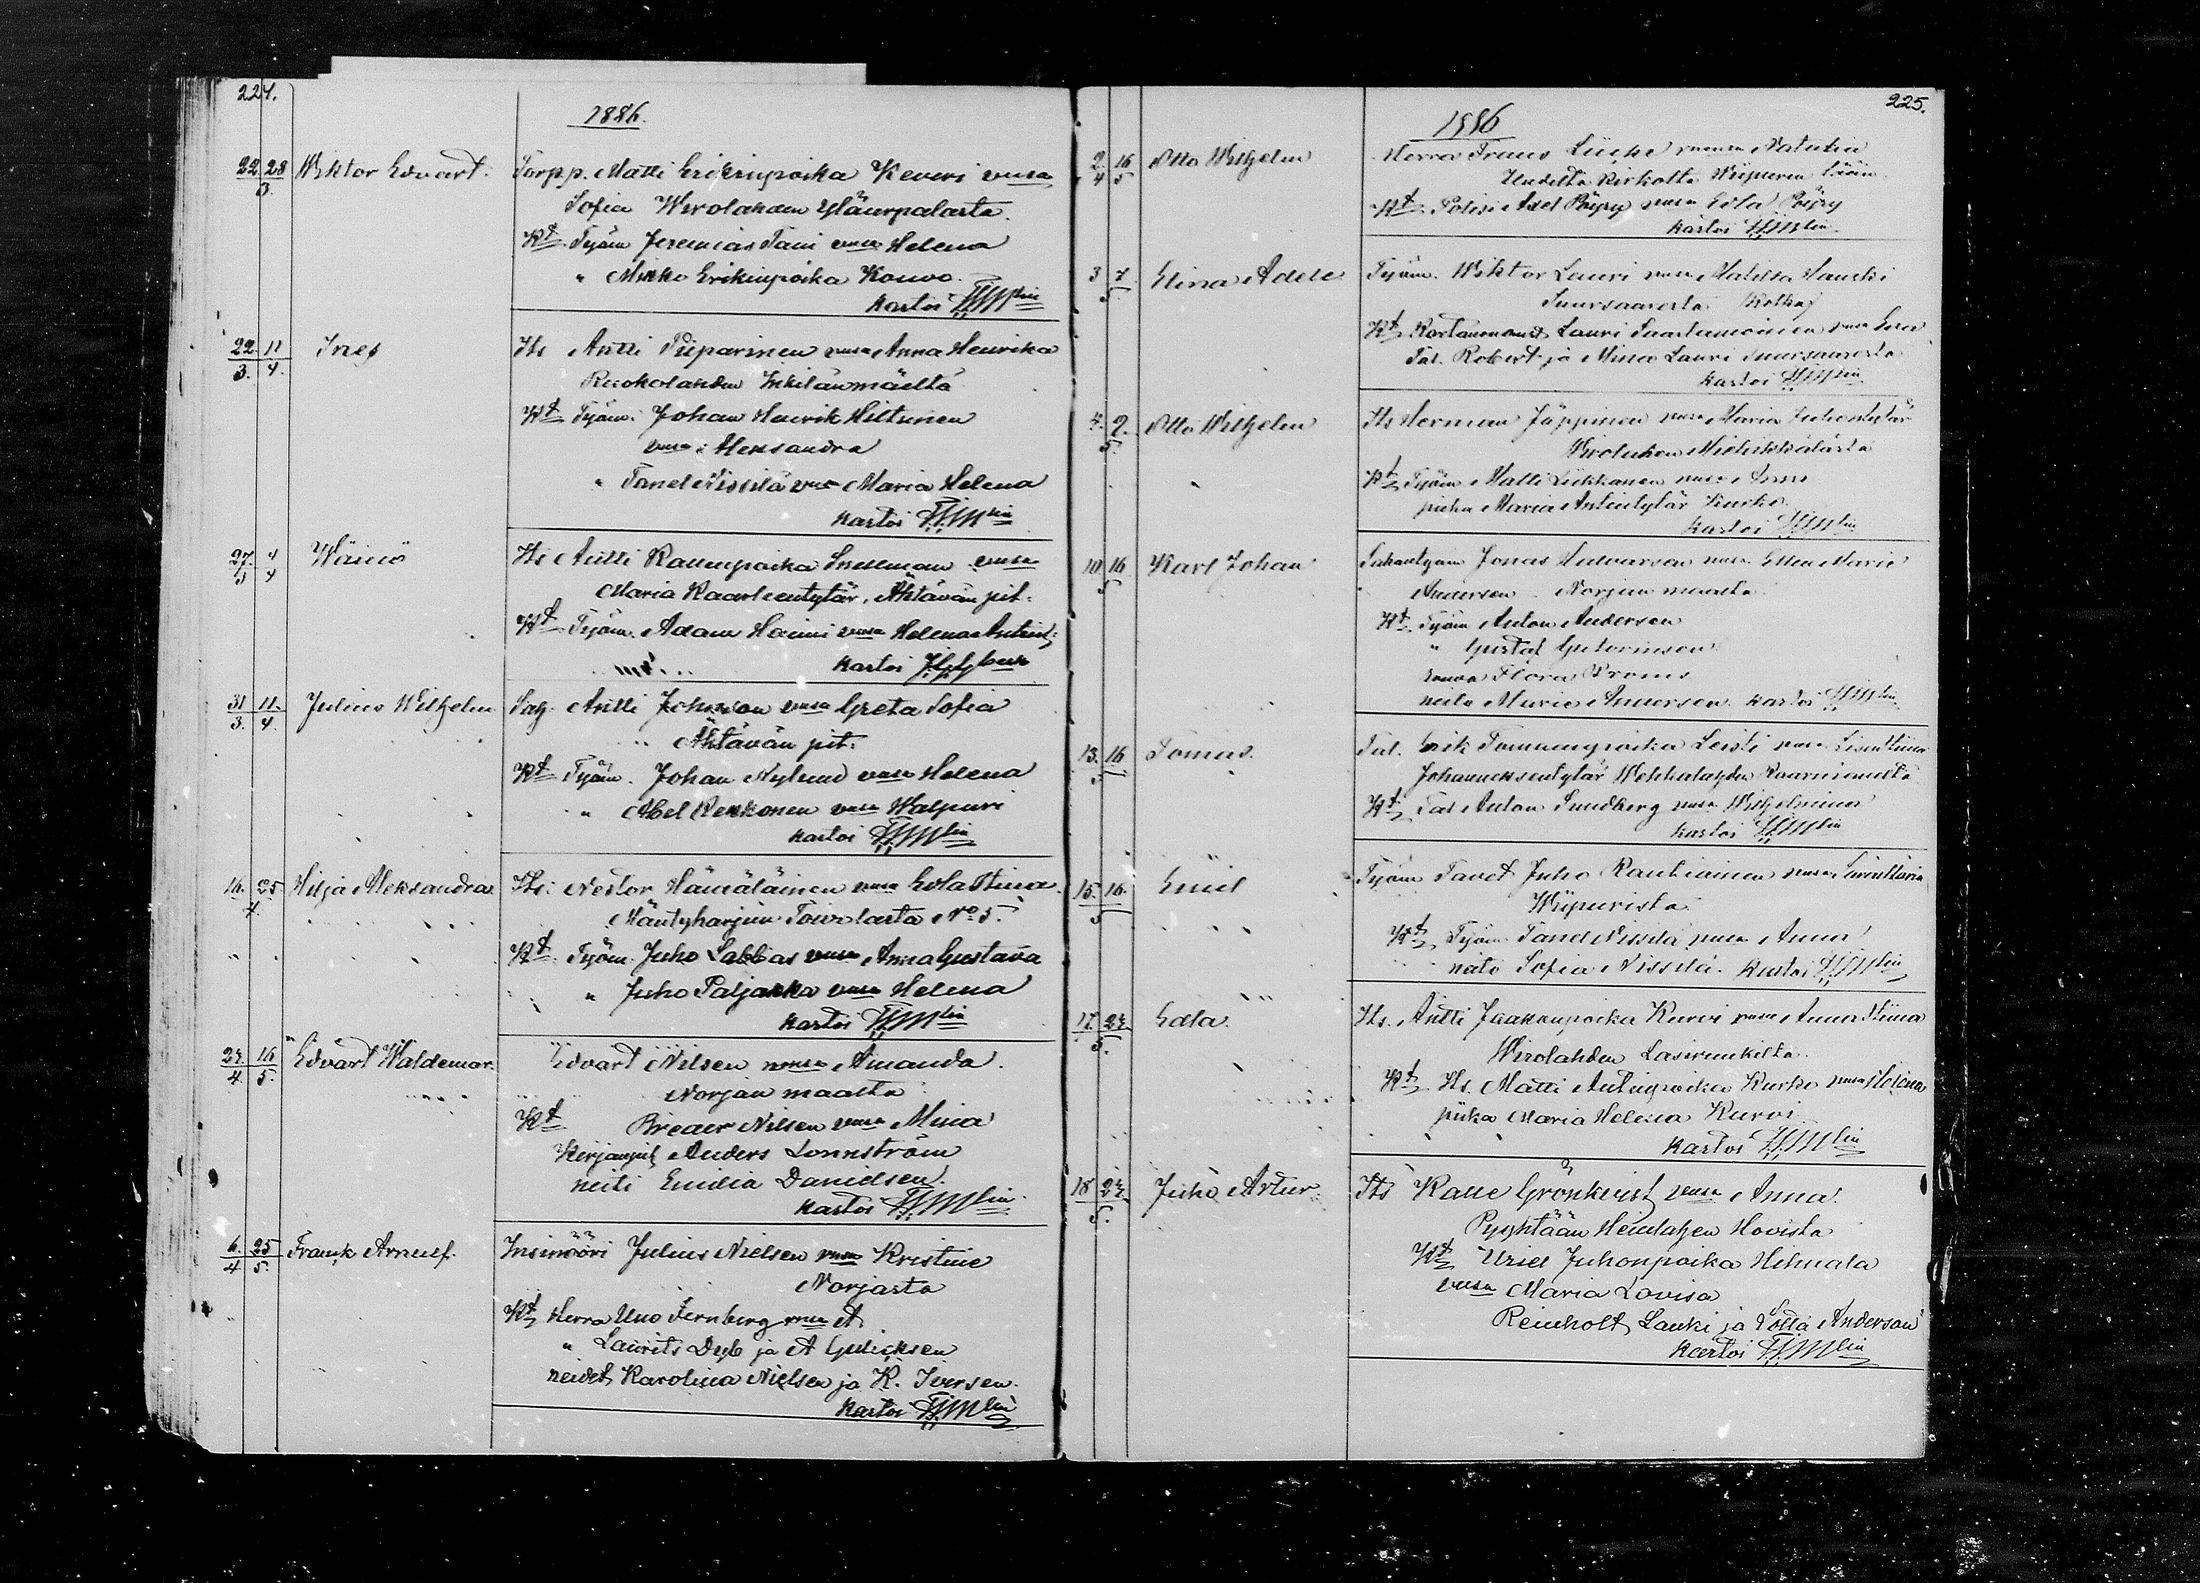 224.
1886.
22 28 Wiktor Edvart. Torpp. Matti Erikinpoika Keveri vmsa
3. Sofia Wirolahden Yläurpalasta.
Kt. Työm Jeremias Taini vmsa Helena
" Mikko Erikinpoika Kouvo.
kastoi
22. 11 Ines Its Antti Piiparinen vmsa Anna Henrika
3. 4. Ruokolahden Inkilänmäeltä
Kt Työm. Johan Henrik Hiltunen
vmsa Aleksandra
" Tanel Nissilä vmsa Maria Helena
kastoi
27. 4 Wäinö Its Antti Kallenpoika Snellman vmsa
3 4 Maria Kaarleentytär, Ähtävän pit.
Kt Työm. Adam Haimi vmsa Helena
kastoi
31 11. Julius Wilhelm Antti Johnson vmsa Greta Sofia
3. 4. Ähtävän pit.
Kt Työm. Johan Nylund vmsa Helena
" Abel Renkonen vmsa Walpuri
kastoi
16. 25 Hilja Aleksandra Its. Nestor Hämäläinen vmsa Edla Stina
4. Mäntyharjun Toivolasta No 5.
Kt Työm. Juho Labbas vmsa Anna Gustava
" Juho Paljakka vmsa Helena
kastoi
24. 16 Edvart Waldemar. Edvart Nilsen vmsa Amanda.
4. 5. Norjan maalta
Kt Nilsen vmsa Mina
Kirjanpit Anders Lonnström
neiti Emilia Danielsen.
kastoi
6. 25 Frank Arnulf. Insinööri Julius Nielsen vmsa Kristine
4 5. Norjasta
Kt Herra Uno Fernberg vmsa A.
" Laurits Dyb ja A Gulicksen
neidet Karolina Nielsen ja K. Iversen.
kastoi
225.
1886
2. 16 Otto Wilhelm Herra Frans vmsa Natalia
4 5 Uudelta Kirkolta Wiipurin lään.
Kt Polisi Axel Pöyry vmsa Edla Pöyry
kastoi
3 7. Elina Adele Työm. Wiktor Lauri vmsa Matilda Hauski
5 Suursaaresta (Kotka)
Kt Lauri Saarlamoinen vmsa Eva
Tal. Robert ja Mina Lauri Suursaaresta
kastoi
4. 9. Otto Wilhelm Its Herman Jäppinen vmsa Maria Juhontytär
5. Wirolahden Miehikkälästä
Kt Työm Matti Liikkanen vmsa Anna
piika Maria Antintytär Kurko.
kastoi
10 16 Karl Johan Sahantyöm Jonas Halvarsen vmsa Ellen Marie
5 Andersen Norjan maalta
Kt Työm Anton Andersen
" Gustaf Gutormsen
rouva Flora
neito Marie Andersen. kastoi
13. 16 Tomas. Tal. Erik Tommanpoika Leisti vmsa Liisa Stiina
5 Johanneksentytär Wehkalahden
Kt Tal Anton Sundberg vmsa Wilhelmina
kastoi
15. 16. Emil Työm Tavet Juho Rautiainen vmsa
5 Wiipurista
Kt Työm Tanel Nissilä vmsa Anna
neito Sofia Nissilä. kastoi
17. 24. Edla. Its. Antti Jaakonpoika Kurvi vmsa Anna Stiina
5. Wirolahden
Kt. Its. Matti Antinpoika Kurko vmsa Helena
piika Maria Helena Kurvi
kastoi
18 24. Juho Artur. Its Kalle Grönkvist vmsa Anna.
5. Pyhtään Heinlahden Hovista
Kt Uriel Juhonpoika Hihnala
vmsa Maria Lovisa
Reinholt Lauki ja Lotta Anderson
kastoi